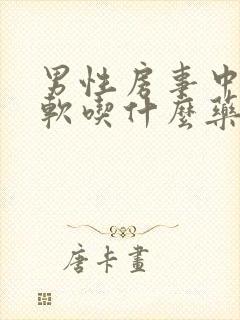 男性房事中
軟喫什麼藥
唐卡畫